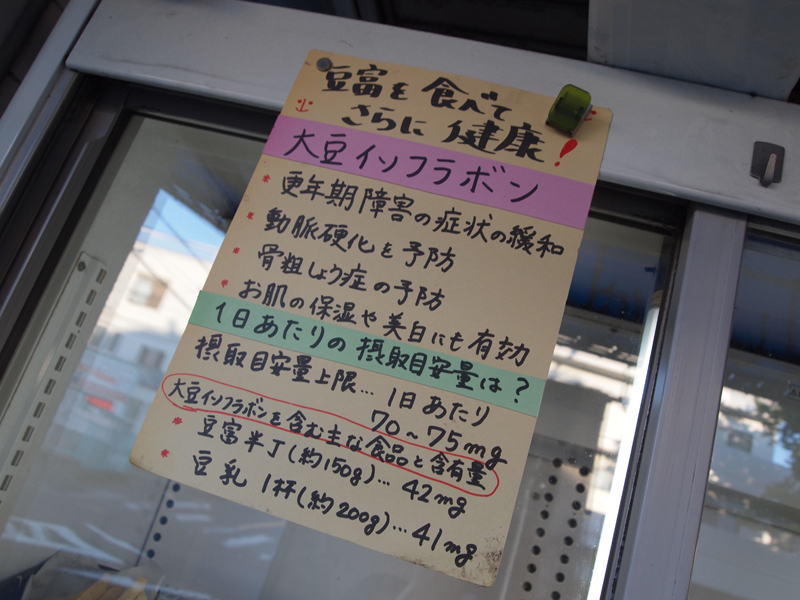 豆富を食べて
さらに健康!
大豆イソフラボン
* 更年期障害の症状の緩和
* 動脈硬化を予防
* 骨粗しょう症の予防
* お肌の保湿や美白にも有効
1日あたりの摂取目安量は?
摂取目安量上限…1日あたり
70~75mg
大豆イソフラボンを含む主な食品と含有量
* 豆富半丁(約150g)…42mg
* 豆乳1杯(約200g)…41mg